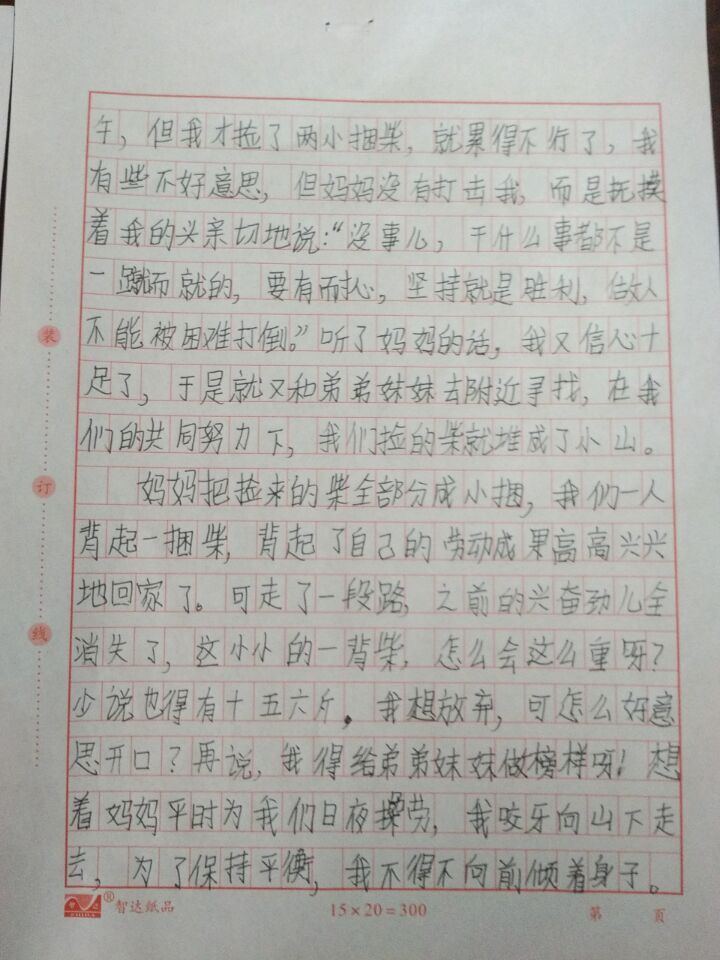 午，但我才捡了两小捆柴，就累得不行了，我
有些不好意思，但妈妈没有打击我，而是抚摸
着我的头亲切地说：“没事儿，干什么事都不是
一蹴而就的，要有耐心，坚持就是胜利，做人
不能被困难打倒。”听了妈妈的话，我又信心十
足了，于是就又和弟弟妹妹去附近寻找，在我
们的共同努力下，我们捡的柴就堆成了小山。
妈妈把捡来的柴全部分成小捆，我们一人
背起一捆柴，背起了自己的劳动成果高高兴兴
地回家了。可走了一段路，之前的兴奋劲儿全
消失了，这小小的一背柴，怎么会这么重呀？
少说也得有十五六斤。我想放弃，可怎么好意
思开口？再说，我得给弟弟妹妹做榜样呀！想
着妈妈平时为我们日夜操劳，我咬牙向山下走
去，为了保持平衡，我不得不向前倾着身子。
装
订
线
®智达纸品
15×20=300
第 页